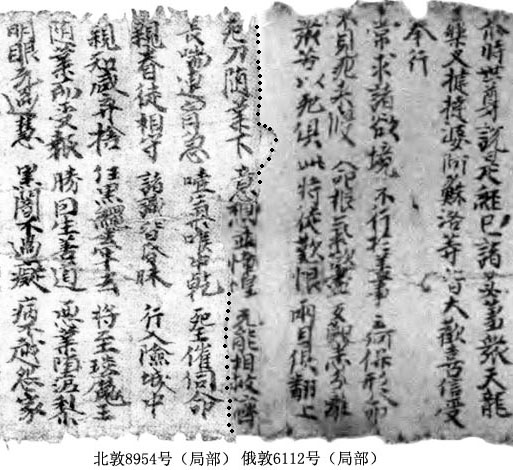 尒時世尊說是經已諸苾芻衆天龍
藥叉揵闥婆阿蘇洛等皆大歡喜信受
奉行
常求諸欲境 不行於善事 云何保形命
不見死來侵 命根氣欲盡 支節悉分離
衆苦以死俱 此時徒歎恨 兩目俱翻上
死刀隨業下 意想並慞惶 无能相救濟
長喘連胷急 噎氣喉中乾 死王催伺命
親眷徒相守 諸識皆昏昧 行入險城中
親知咸弃捨 任黑繩牽去 將至琰魔王
隨業而受報 勝因生善道 惡業墮泥犁
明眼无過慧 黑闇不過癡 病不越怨家
北敦8954号（局部） 俄敦6112号（局部）